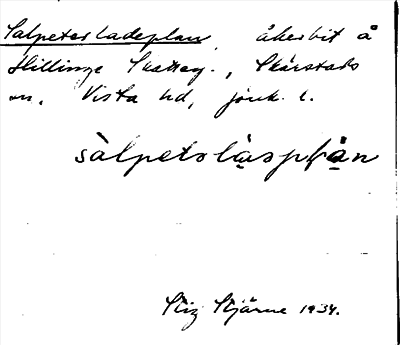 Salpeterladeplan, åkerbit å
Hillinge Skatteg., Skärstads
sn. Vista hd, jönk. l.
sàlpetsla̱spḷa̱n
Stig Stjärne 1934.